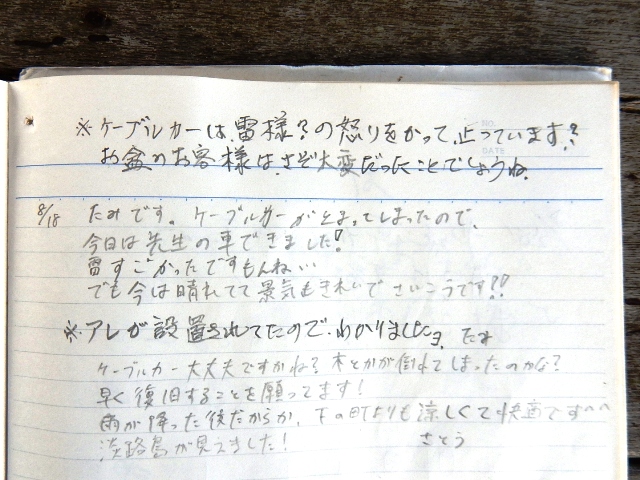 ※ケーブルカーは、雷様?の怒りをかって、止っています??
お盆のお客様は、さぞ大変だったことでしょうね。
8/18 たみです。ケーブルカーが止まってしまったので、
今日は先生の車できました!
雷すごかったですもんね…
でも今は晴れてて景気もきれいでさいこうです!!
※アレが設置されてたので、わかりましたヨ。たみ
ケーブルカー大丈夫ですかね?木とかが倒れてしまったのかな?
早く復旧することを願ってます!
雨が降った後だからか、下の町よりも涼しくて快適です^^
淡路島が見えました! さとう